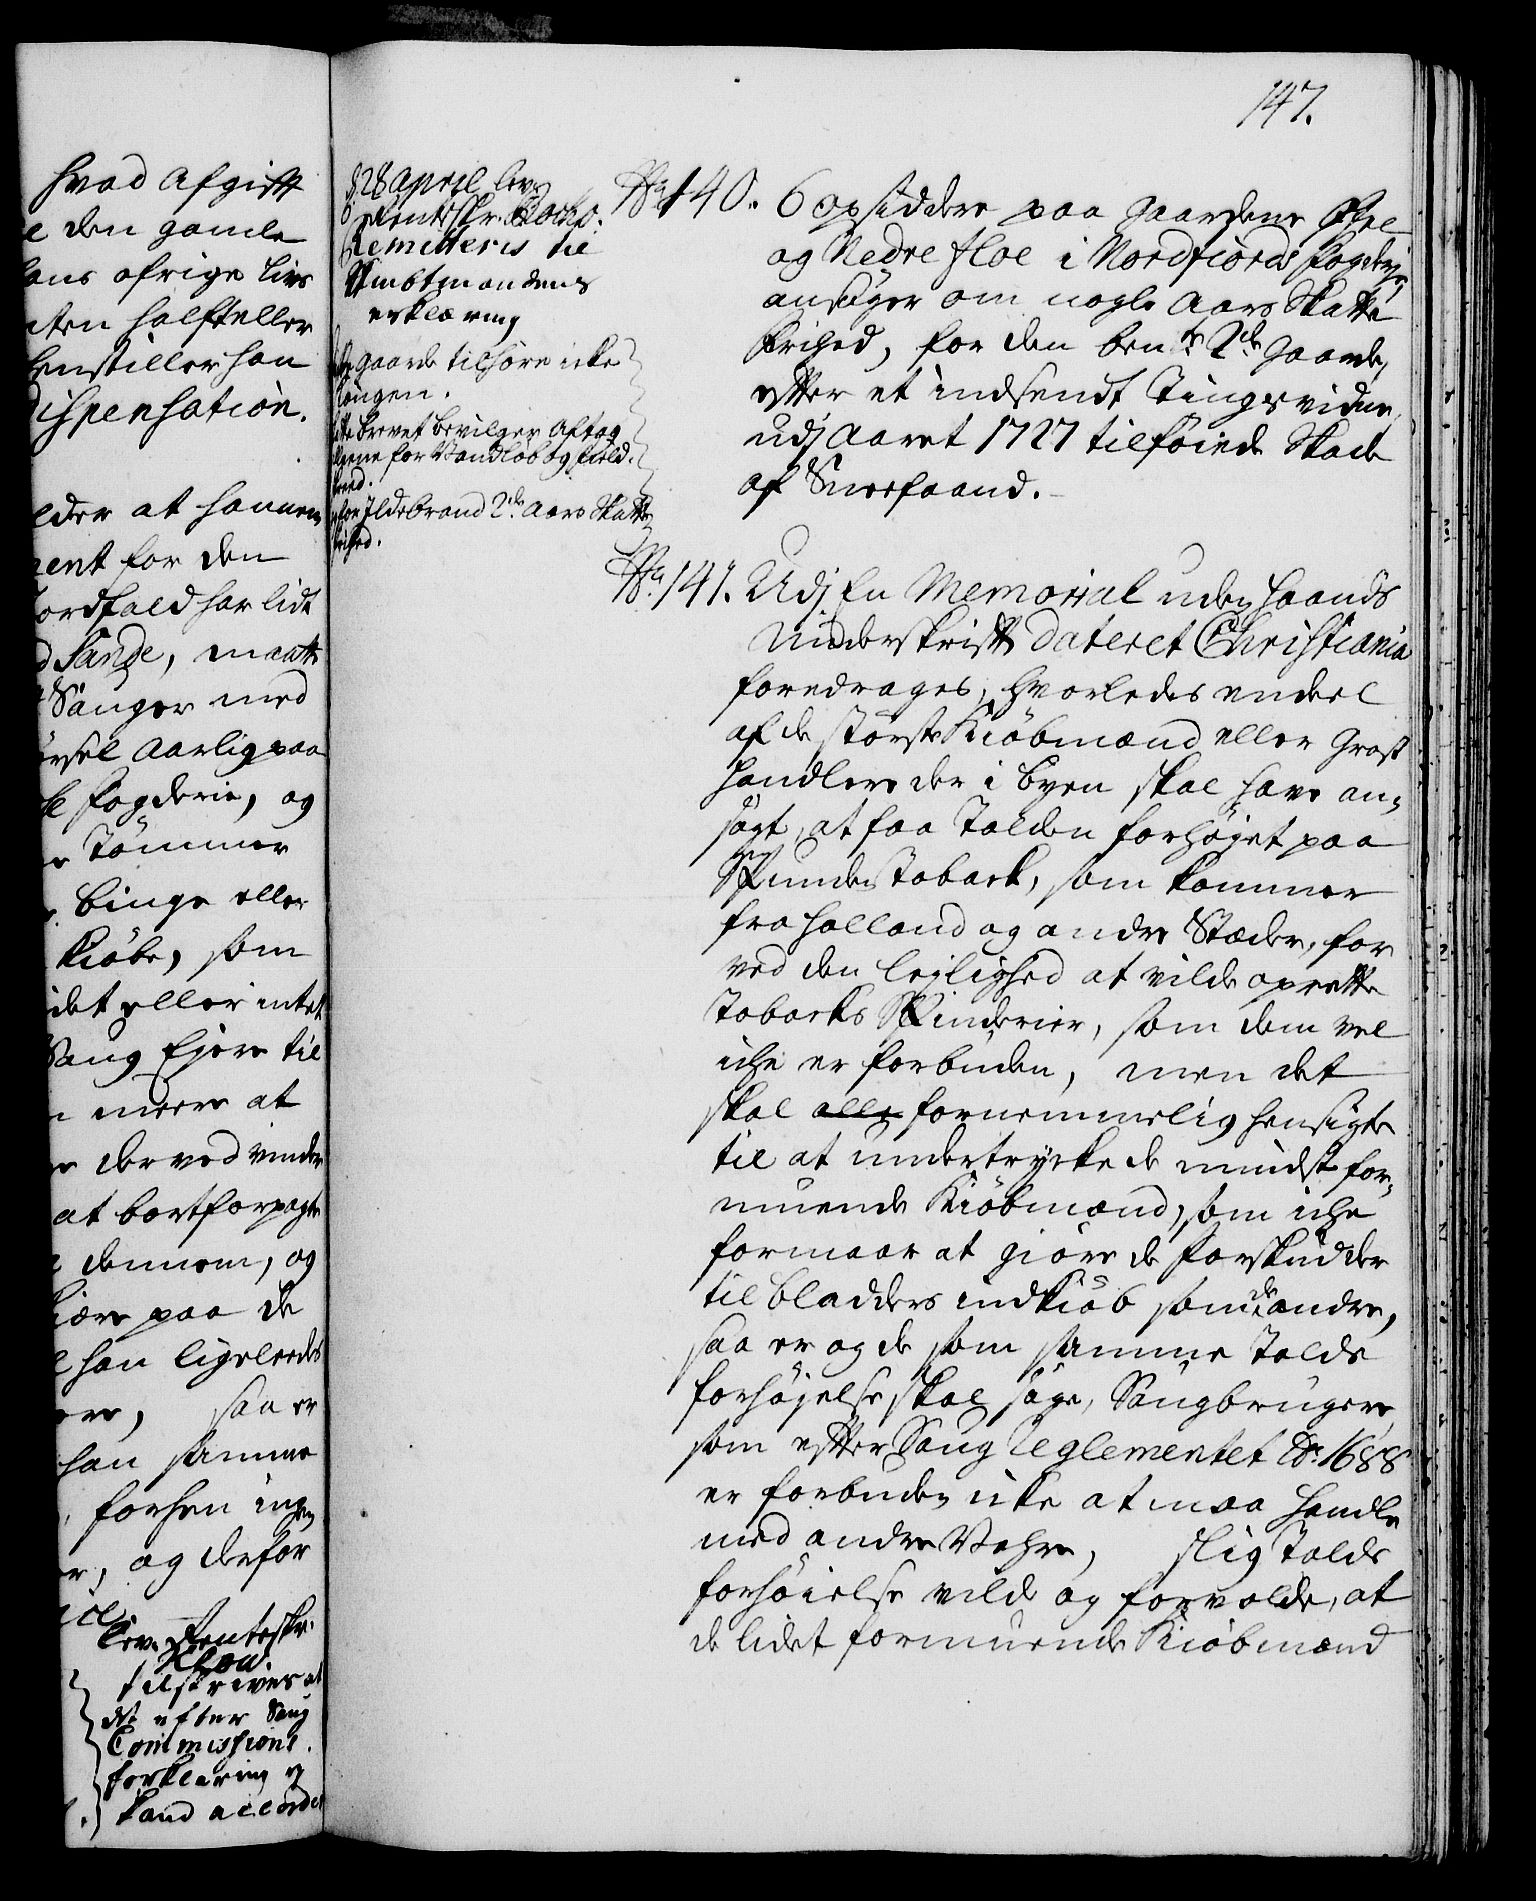 147.
hvad Afgift
den gamle
hans ofrige Livs
halft eller
henstiller han
Dispensation.
at hannem
for den
Jordfald har lidt
Sande, maatte
Sauger med
Aarlig paa
fogderie, og
Tömmer
binge eller
Kiöbe, som
lidet eller intet
Saug Ejere til
meere at
derved vinder
at bortforpagte
dennem, og
paa de
han ligeleedes
saa er
han samme
forhen ingen
og derfor
lev. Renteskr.
tilskrives at
det efter Saug
Commissions
forklaring ey
kand accorder
d. 28 April lev.
Renteskr.
Remitteris til
Ambtmandens
erklæring
gaarde tilhøre icke
Kongen.
brevet bevilger Aftag
for Vandløb og field
skreed.
for Ildebrand 2de Aars Skatte
frihed.
No. 140. 6 opsiddere paa gaardene Øfre
og Nedre Floe i Nordfiords fogderie,
ansøger om nogle Aars Skatte
frihed, for den bente 2de gaarde,
efter et indsendt Tingsvidne,
udj Aaret 1727 tilføiede Skade
af Sneefaand.
No. 141. Udj En Memorial uden haands
Underskrift dateret Christiania
foredrages, hvorledes endeel
af de störste Kiöbmænd eller Gross
handlere der i byen skal have an-
søgt, at faa Tolden forhöjet paa
Spunden Toback, som kommer
fra Holland og andre Stæder, for
ved den lejlighed at vilde oprette
Tobacks Spinderier, som dem vel
iche er forbuden, men det
skal fornemmelig hensigte
til at undertrycke de mindst for-
muende Kiöbmænd, som iche
formaar at giöre de forskudder
til bladders indkiöb som de andre,
saa er og de som samme Told
forhöjelse skal søge, Saugbrugere
som efter Saug Reglementet Ao. 1688
er forbuden icke at maa handle
med andre Vahre, slig Told
forhöielse vilde og forvolde, at
de lidet formuende Kiöbmænd